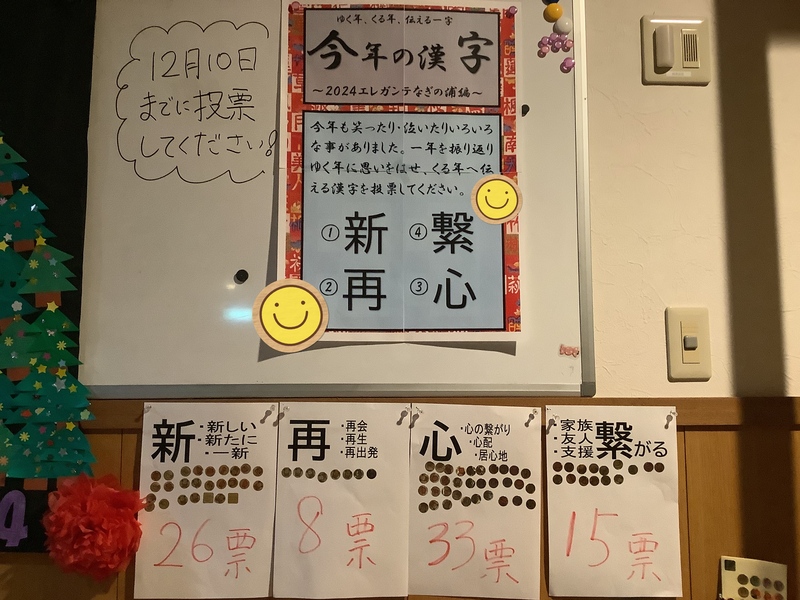 12月10日
までに投票
してください!
ゆく年、くる年、伝える一字
今年の漢字
〜2024エレガンテなぎの浦編〜
今年も笑ったり・泣いたりいろいろ
な事がありました。一年を振り返り
ゆく年に思いをはせ、くる年へ伝
える漢字を投票してください。
①新 ④繋
②再 ③心
新
・新しい
・新たに
・一新
26票
再
・再会
・再生
・再出発
8票
心
・心の繋がり
・心配
・居心地
33票
・家族
・友人
・支援
繋がる
15票
4